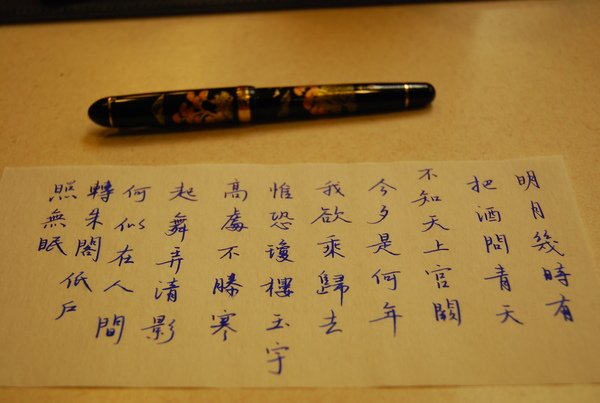 明月幾時有
把酒問青天
不知天上宮闕
今夕是何年
我欲乘歸去
惟恐瓊樓玉宇
高處不勝寒
起舞弄清影
何似在人間
轉朱閣低戶
照無眠